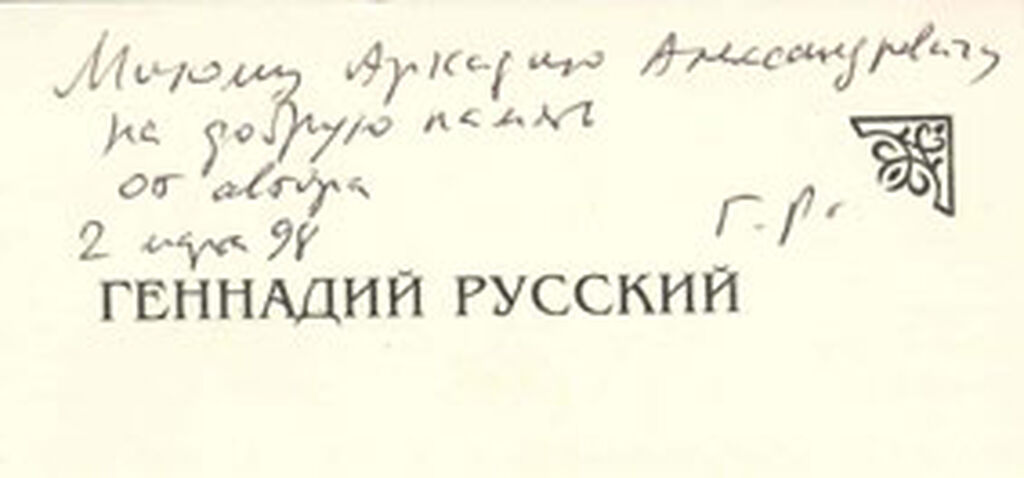 Милому Аркадию Александровичу
на добрую память
от автора
2 марта 98
Г. Р.
ГЕННАДИЙ РУССКИЙ